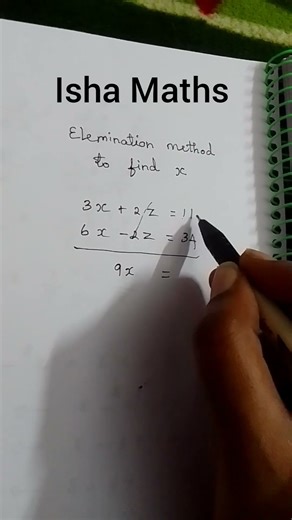 Isha Maths
Elemination method
to find x
3x + 2z = 11
6x - 2z = 34
9x =